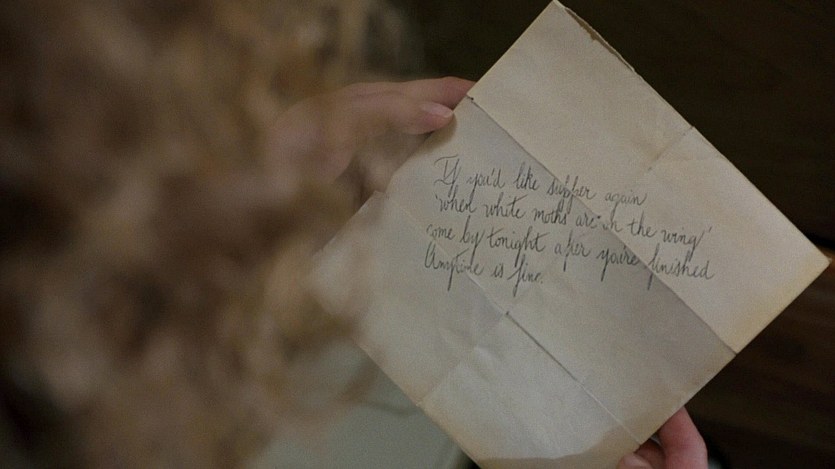 If you'd like supper again
'when white moths are on the wing'
come by tonight after you're finished
Anytime is fine.